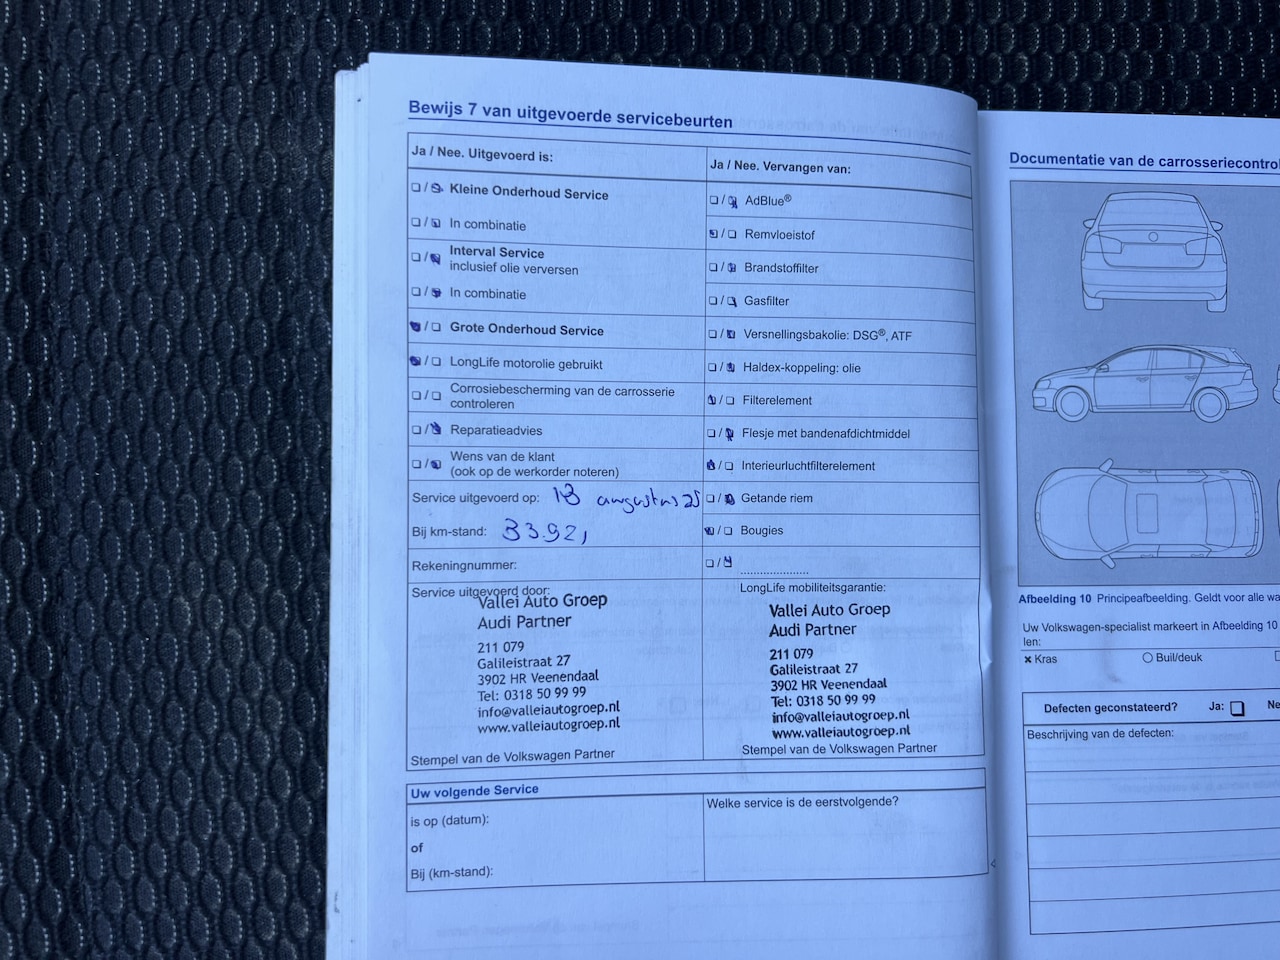 Bewijs 7 van uitgevoerde servicebeurten
Ja / Nee. Uitgevoerd is:
Kleine Onderhoud Service
In combinatie
Interval Service
inclusief olie verversen
In combinatie
Grote Onderhoud Service
LongLife motorolie gebruikt
Corrosiebescherming van de carrosserie
controleren
Reparatieadvies
Wens van de klant
(ook op de werkorder noteren)
Service uitgevoerd op: augustus 25
Bij km-stand: 33.921
Rekeningnummer:
Service uitgevoerd door:
Vallei Auto Groep
Audi Partner
211 079
Galileistraat 27
3902 HR Veenendaal
Tel: 0318 50 99 99
info@valleiautogroep.nl
www.valleiautogroep.nl
Stempel van de Volkswagen Partner
Ja / Nee. Vervangen van:
AdBlue®
Remvloeistof
Brandstoffilter
Gasfilter
Versnellingsbakolie: DSG®, ATF
Haldex-koppeling: olie
Filterelement
Flesje met bandenafdichtmiddel
Interieurluchtfilterelement
Getande riem
Bougies
LongLife mobiliteitsgarantie:
Vallei Auto Groep
Audi Partner
211 079
Galileistraat 27
3902 HR Veenendaal
Tel: 0318 50 99 99
info@valleiautogroep.nl
www.valleiautogroep.nl
Stempel van de Volkswagen Partner
Uw volgende Service
is op (datum):
of
Bij (km-stand):
Welke service is de eerstvolgende?
Documentatie van de carrosseriecontrol
Afbeelding 10 Principeafbeelding. Geldt voor alle wa
Uw Volkswagen-specialist markeert in Afbeelding 10
len:
× Kras
Buil/deuk
Defecten geconstateerd? Ja: Ne
Beschrijving van de defecten: